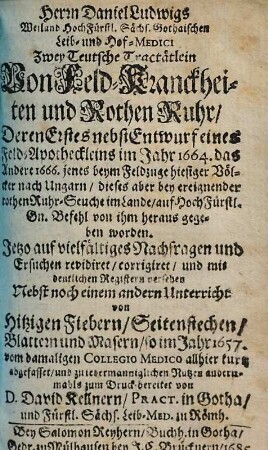 Herrn Daniel Ludwigs
Weiland HochFürstl. Sächs. Gothaischen
Leib- und Hof-MEDICI
Zwey Teutsche Tractätlein
Von Feld-Kranckhei-
ten und Rothen Ruhr/
Deren Erstes nebst Entwurf eines
Feld-Apotheckleins im Jahr 1664. das
Andere 1666. jenes beym Feldzuge hiesiger Völ-
cker nach Ungarn / dieses aber bey ereignender
rothen Ruhr-Seuche im Lande/auf Hoch Fürstl.
Gn. Befehl von ihm heraus gege-
ben worden.
Jetzo auf vielfältiges Nachfragen und
Ersuchen revidiret/ corrigiret / und mit
deutlichen Registern versehen
Nebst noch einem andern Unterricht
von
Hitzigen Fiebern/ Seitenstechen/
Blattern und Masern/ so im Jahr 1657.
vom damaligen COLLEGIO MEDICO allhier kurtz
abgefasset/ und zu jedermänniglichen Nutzen
mahls zum Druck bereitet von
D. David Kellnern/ PRACT. in Gotha/
und Fürstl. Sächs. Leib-MED. zu Römh.
Bey Salomon Reyhern/ Buchh. in Gotha/
Gedr. zu Mülhausen bey J. C. Brücknern/